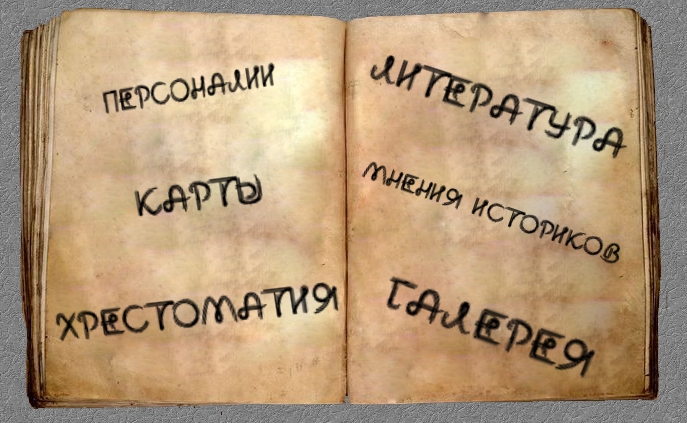 ПЕРСОНАЛИИ
КАРТЫ
ХРЕСТОМАТИЯ
ЛИТЕРАТУРА
МНЕНИЯ ИСТОРИКОВ
ГАЛЕРЕЯ